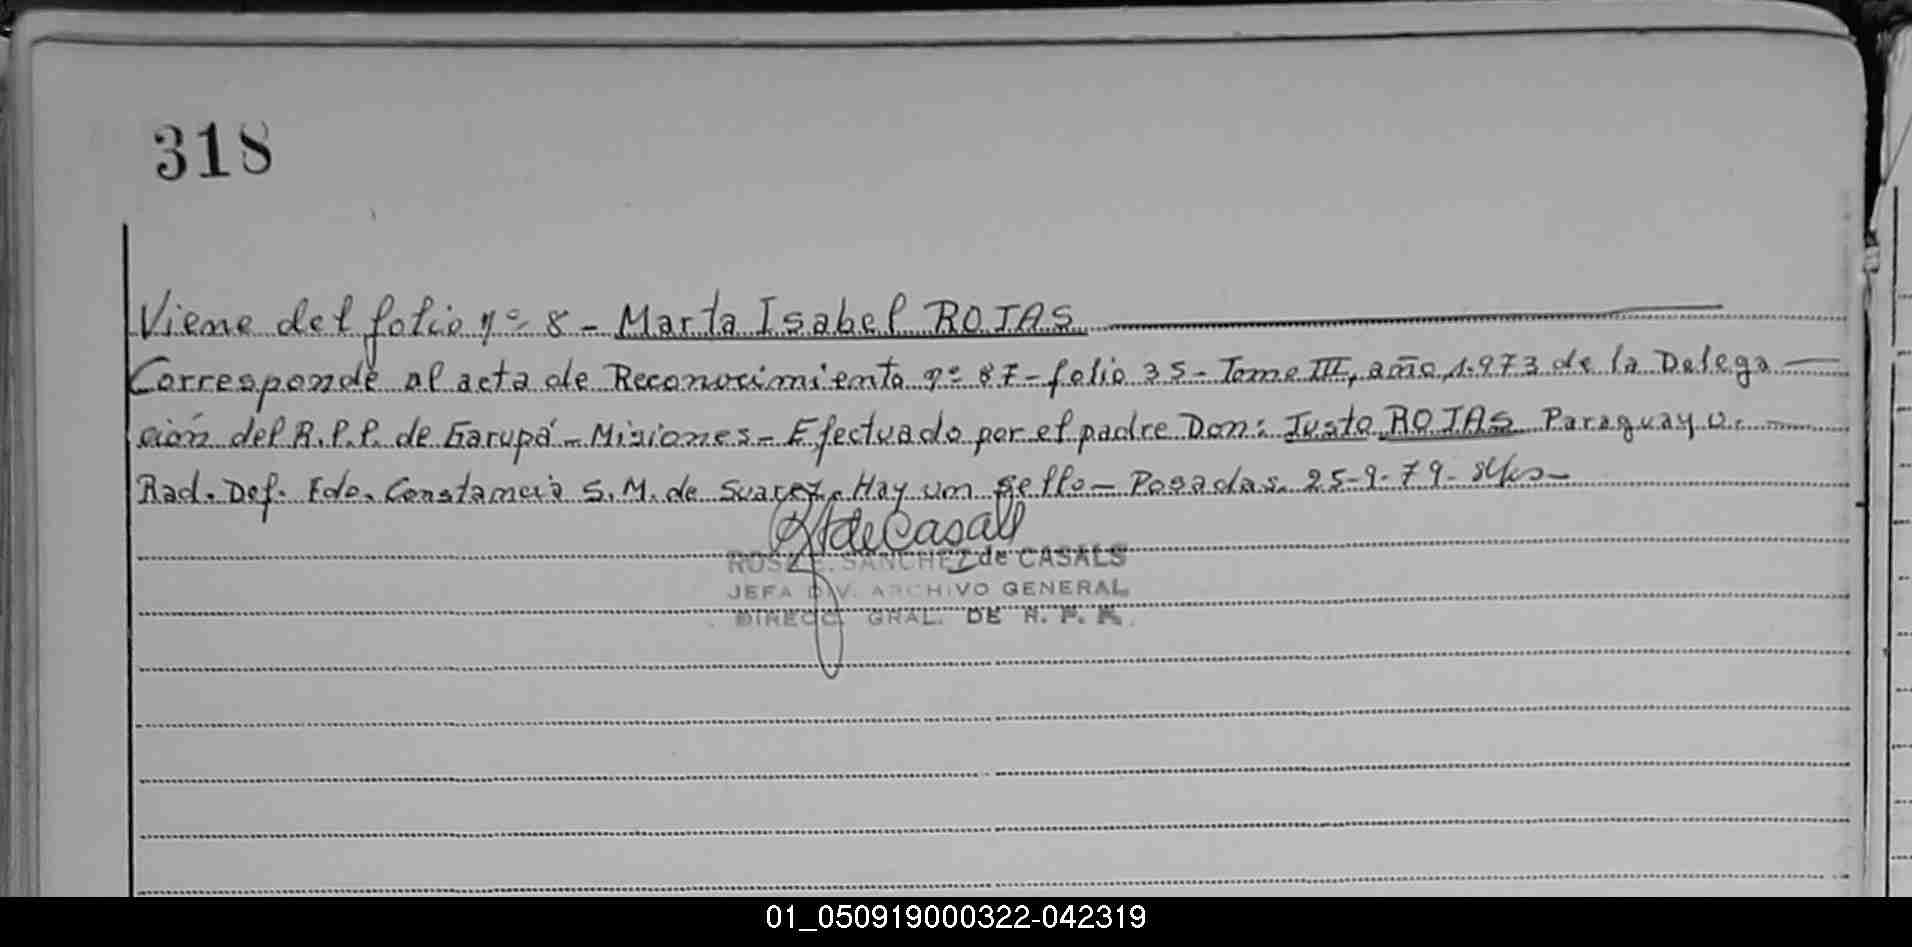 318
Viene del folio nº 8 - Marta Isabel ROJAS
Corresponde al acta de Reconocimiento nº 87 - folio 35 - Tomo III, año 1.973 de la Delega-
ción del R.P.P. de Garupá - Misiones - Efectuado por el padre Don: Justo ROJAS Paraguayo.
Rad. Def. Fdo. Constancia S. M. de Suarez. Hay un sello - Posadas. 25-9-79-
ROSA E. SANCHEZ de CASALS
JEFA DIV. ARCHIVO GENERAL
DIRECC. GRAL. DE R. P. P.
01_050919000322-042319